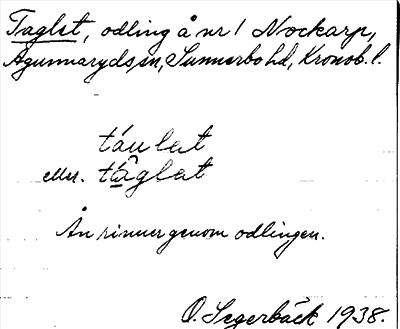 Taglet, odling å nr 1 Nockarp,
Agunnaryds sn, Sunnerbo hd, Kronob. l.
táulat
ell. tâglat
Ån rinner genom odlingen.
O. Segerbäck 1938.